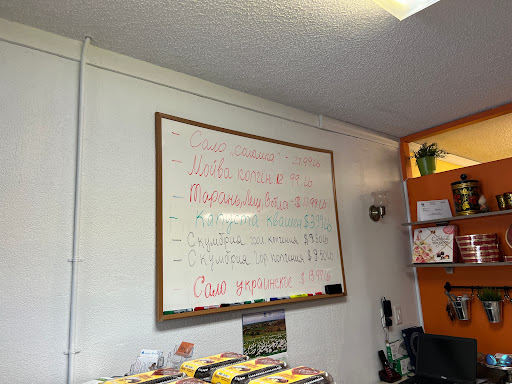 - Сало "соломка" - 21.99 Lb
- Мойва копчен 12.99 Lb
- Тарань, Лещ, Вобла - 11.99 Lb
- Капуста квашен $3.99 Lb
- Скумбрия хол. копчения $9.50 Lb
- Скумбрия гор. копчения $9.50 Lb
Сало украинское $13.99 Lb